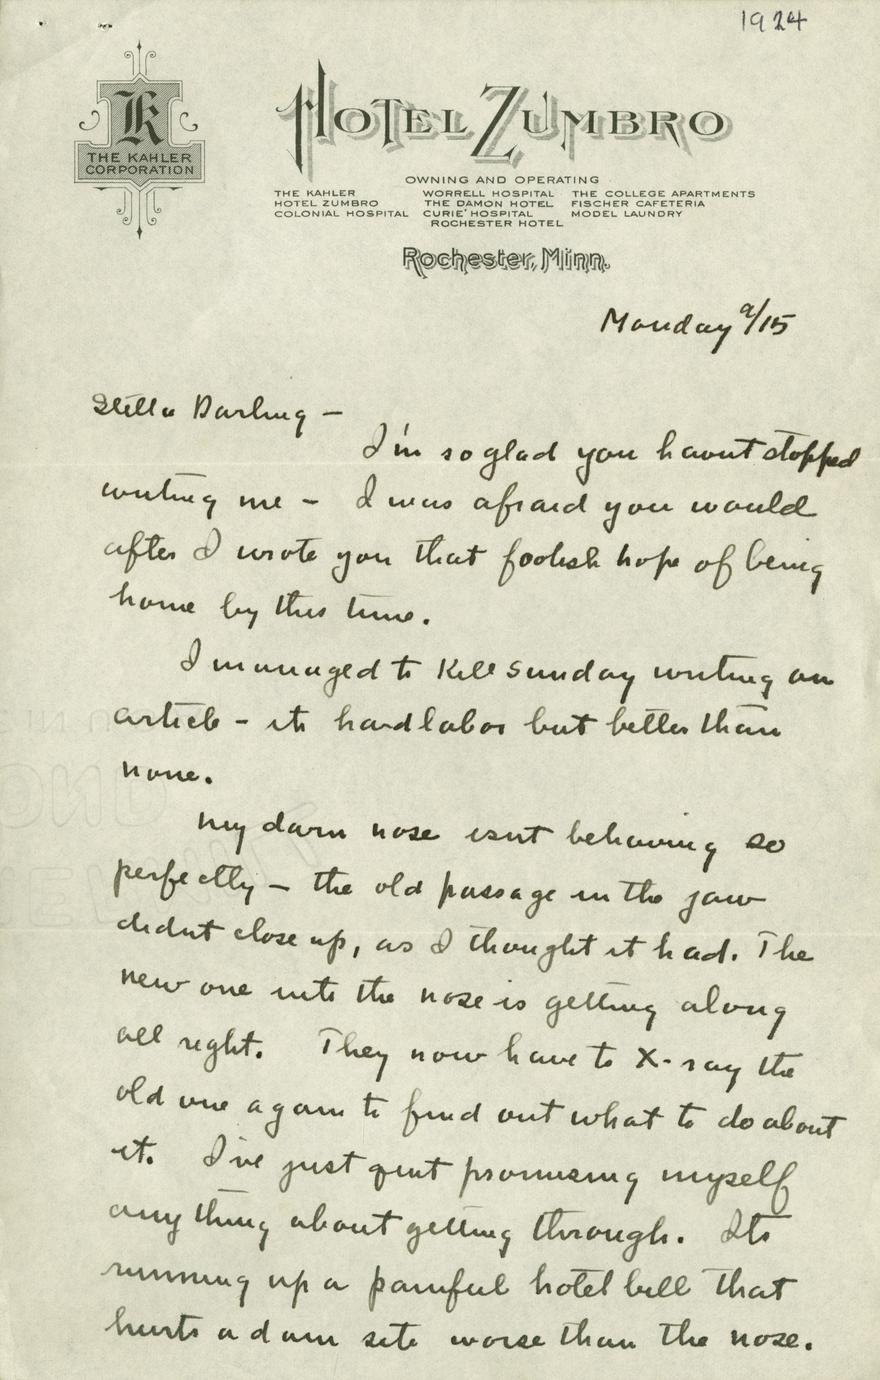 1924
K
THE KAHLER
CORPORATION
HOTEL ZUMBRO
OWNING AND OPERATING
THE KAHLER WORRELL HOSPITAL THE COLLEGE APARTMENTS
HOTEL ZUMBRO THE DAMON HOTEL FISCHER CAFETERIA
COLONIAL HOSPITAL CURIE HOSPITAL MODEL LAUNDRY
ROCHESTER HOTEL
Rochester, Minn.
Monday 9/15
Stella Darling –
I'm so glad you havnt stopped
writing me – I was afraid you would
after I wrote you that foolish hope of being
home by this time.
I managed to kill Sunday writing an
article – its hard labor but better than
none.
My darn nose isnt behaving so
perfectly – the old passage in the jaw
didnt close up, as I thought it had. The
new one into the nose is getting along
all right. They now have to X-ray the
old one again to find out what to do about
it. I've just quit promising myself
anything about getting through. Its
running up a painful hotel bill that
hurts a darn site worse than the nose.